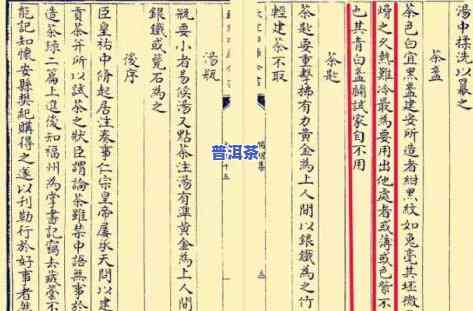 湯中揉洗以羃之
茶盞
茶色白宜黑盞建安所造者紺黑紋如兔毫其坯微
熁之久熱難冷最為要用出他處者或薄或色紫不
也其青白盞鬬試家自不用
茶匙
茶匙要重擊拂有力黃金為上人間以銀鐵為之竹
輕建茶不取
普洱茶
湯瓶
瓶要小者易候湯又點茶注湯有準黃金為上人間
銀鐵或瓷石為之
後序
臣皇祐中修起居注奏事仁宗皇帝屢承天問以建
貢茶并所以試茶之狀臣謂論茶雖禁中語無事於
造茶錄二篇上進後知福州為掌書記竊去藏藁不
能記知懷安縣樊紀購得之遂以刊勒行於好事者然